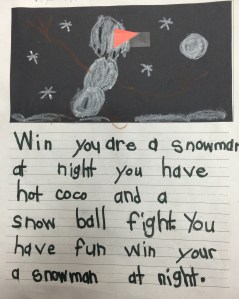 Win you are a snowman
at night you have
hot coco and a
snow ball fight. You
have fun win your
a snowman at night.